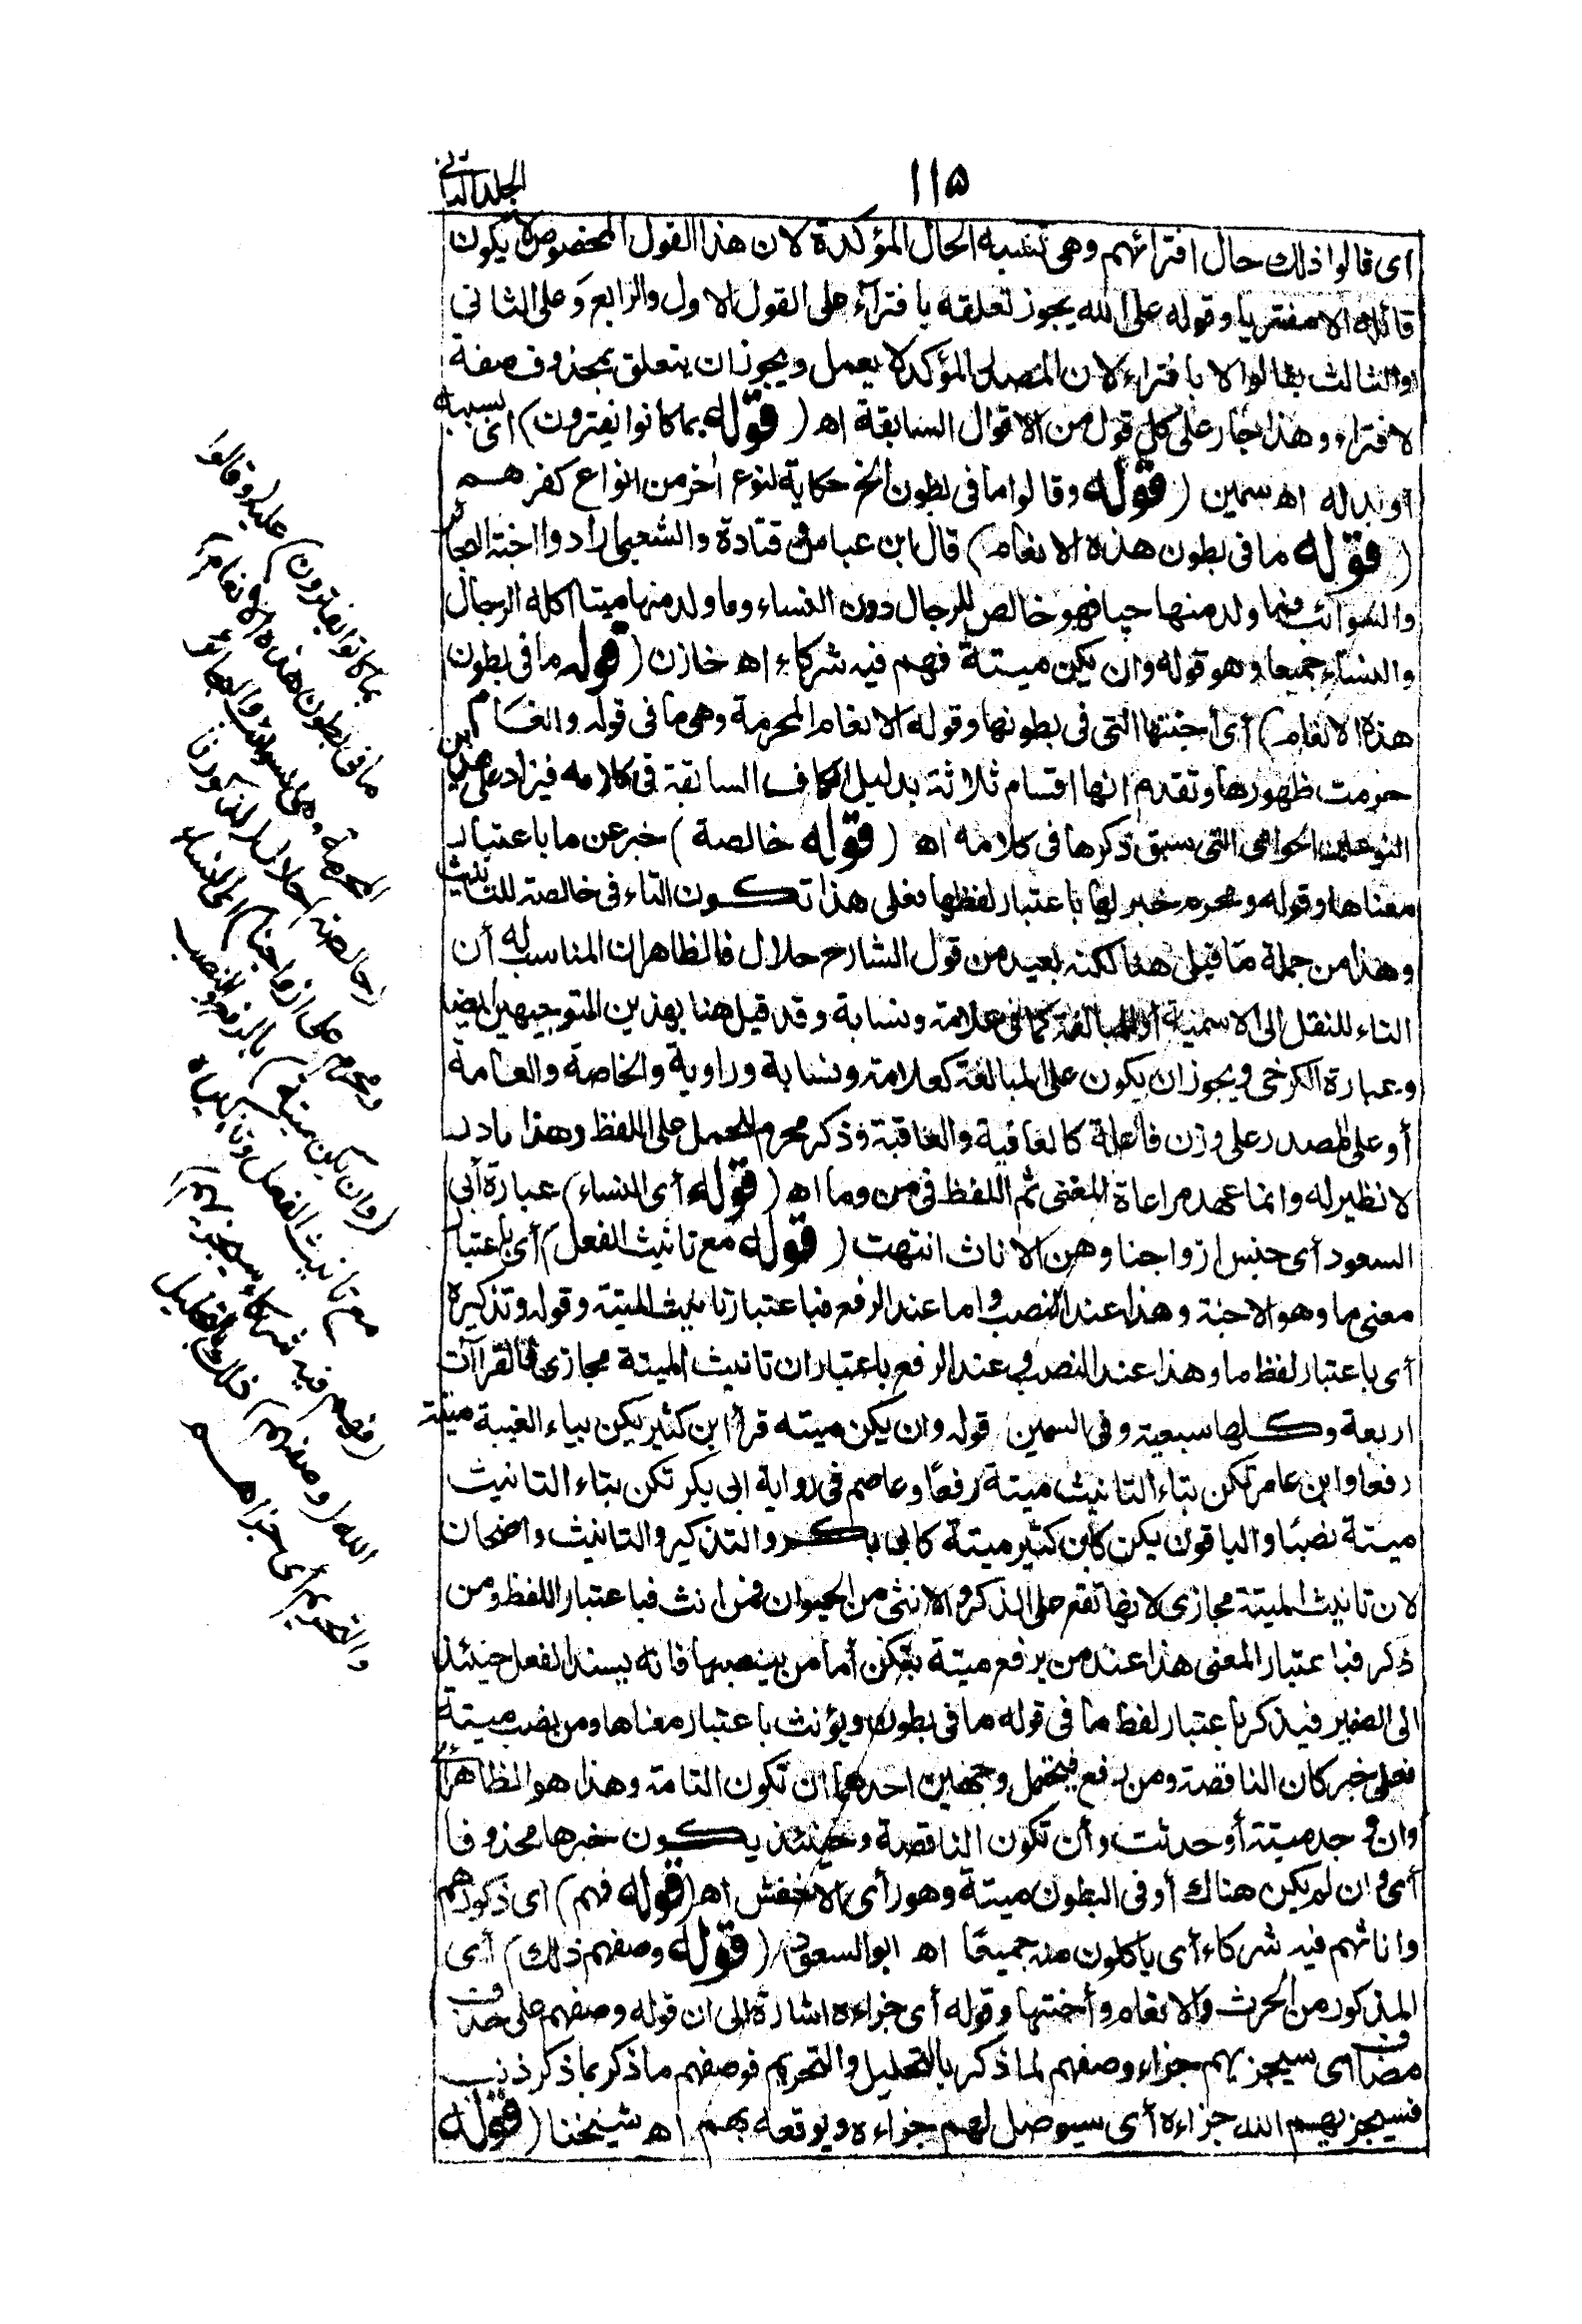 ١١٥
الجلد الثاني
اى قالوا ذلك حال افترائهم وهى تشبه الحال المؤكدة لان هذا القول المخصوص لا يكون
قائله الا مفتريا وقوله على الله يجوز تعلقه بافتراء على القول الاول والرابع وعلى الثانى
والثالث بقالوا لا بافتراء لان المصدر المؤكد لا يعمل ويجوز ان يتعلق بمحذوف صفة
لافتراء وهذا جار على كل قول من الاقوال السابقة اه (قوله بما كانوا يفترون) اى بسببه
او بدله اه سمين (قوله وقالوا ما فى بطون الخ حكاية لنوع اخر من انواع كفرهم
(قوله ما فى بطون هذه الانعام) قال ابن عباس وقتادة والشعبى ارادوا اجنة البحائر
والسوائب فما ولد منها حيا فهو خالص للرجال دون النساء وما ولد منها ميتا اكله الرجال
والنساء جميعا وهو قوله وان يكن ميتة فهم فيه شركاء اه خازن (قوله ما فى بطون
هذه الانعام) أى أجنتها التى فى بطونها وقوله الانعام المحرمة وهى ما فى قوله وانعام
حرمت ظهورها وتقدم انها اقسام ثلاثة بدليل الكاف السابقة فى كلامه فيزاد على هذين
النوعين الحوامى التى سبق ذكرها فى كلامه اه (قوله خالصة) خبر عن ما باعتبار
معناها وقوله ومحرم خبر لها باعتبار لفظها فعلى هذا تكون التاء فى خالصة للتانيث
وهذا من جملة ما قيل هنا لكنه بعيد من قول الشارح حلال فالظاهر ان المناسب له أن
التاء للنقل الى الاسمية أو للمبالغة كما فى علامة ونسابة وقد قيل هنا بهذين التوجيهين ايضا
وعبارة الكرخى ويجوز ان يكون على المبالغة كعلامة ونسابة وراوية والخاصة والعامة
أو على المصدر على وزن فاعلة كالعافية والعاقبة وذكر محرم للحمل على اللفظ وهذا نادر
لا نظير له وانما عهد مراعاة المعنى ثم اللفظ فى من وما اه (قوله أى النساء) عبارة أبى
السعود أى جنس ازواجنا وهن الاناث انتهت (قوله مع تانيث الفعل) أى باعتبار
معنى ما وهو الاجنة وهذا عند النصب واما عند الرفع فباعتبار تانيث الميتة وقوله وتذكيره
أى باعتبار لفظ ما وهذا عند النصب وعند الرفع باعتبار ان تانيث الميتة مجازى فالقراآت
اربعة وكلها سبعية وفى السمين قوله وان يكن ميتة قرأ ابن كثير يكن بياء الغيبة ميتة
رفعا وابن عامر تكن بتاء التانيث ميتة رفعا وعاصم فى رواية ابى بكر تكن بتاء التانيث
ميتة نصبا والباقون يكن كابن كثير ميتة كابى بكر والتذكير والتانيث واضحان
لان تانيث الميتة مجازى لانها تقع على الذكر والانثى من الحيوان فمن انث فباعتبار اللفظ ومن
ذكر فباعتبار المعنى هذا عند من يرفع ميتة بتكن أما من ينصبها فانه يسند الفعل حينئذ
الى الضمير فيذكر باعتبار لفظ ما فى قوله ما فى بطون ويؤنث باعتبار معناها ومن نصب ميتة
فعلى خبر كان الناقصة ومن رفع فيحتمل وجهين احدهما ان تكون التامة وهذا هو الظاهر أى
وان وجد ميتة أو حدثت وأن تكون الناقصة وحينئذ يكون خبرها محذوفا
أى وان لم يكن هناك أو فى البطون ميتة وهو رأى الاخفش اه (قوله فهم) اى ذكورهم
واناثهم فيه شركاء أى ياكلون منه جميعا اه ابو السعود (قوله وصفهم ذلك) أى
المذكور من الحرث والانعام وأجنتها وقوله أى جزاءه اشارة الى ان قوله وصفهم على حذف
مضاف اى سيجزيهم جزاء وصفهم لما ذكر بالتحليل والتحريم فوصفهم ما ذكر بما ذكر ذنب
فسيجزيهم الله جزاءه أى سيوصل لهم جزاءه ويوقعه بهم اه شيخنا (قوله
بما كانوا يفترون) عليه (وقالوا
ما فى بطون هذه الانعام)
المحرمة وهى السوائب والبحائر
(خالصة) حلال (لذكورنا
ومحرم على ازواجنا) اى النساء
(وان يكن ميتة) بالرفع والنصب
مع تانيث الفعل وتذكيره
(فهم فيه شركاء سيجزيهم)
الله (وصفهم) ذلك بالتحليل
والتحريم اى جزاءهم